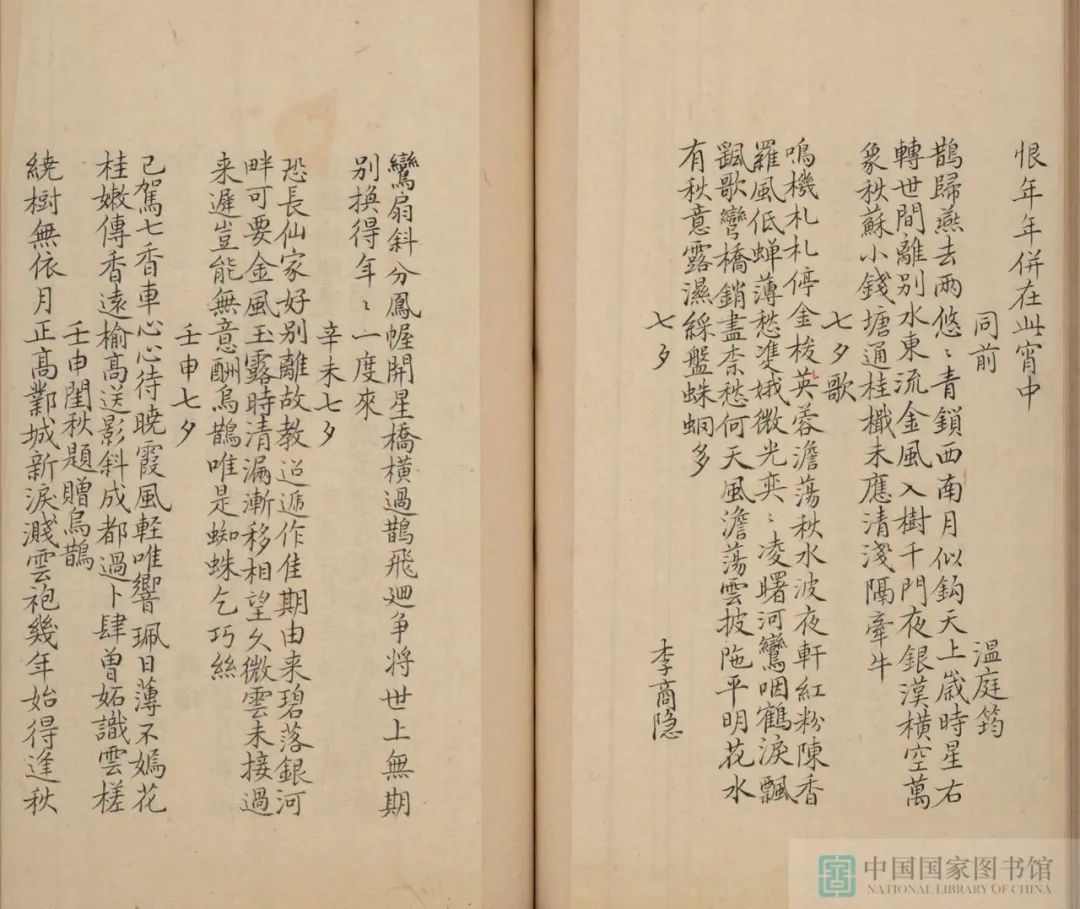 恨年年併在此宵中
同前 温庭筠
鵲歸燕去兩悠〻青鎖西南月似鈎天上歲時星右
轉世間離别水東流金風入樹千門夜銀漢横空萬
象秋蘇小錢塘通桂檝未應清淺隔牽牛
七夕歌
鳴機札札停金梭芙蓉澹蕩秋水波夜軒紅粉陳香
羅風低蟬薄愁雙娥微光奕〻凌曙河鸞咽鶴淚飄
飖歌彎橋銷盡柰愁何天風澹蕩雲披陁平明花水
有秋意露濕綵盤蛛蛧多
七夕 李商隐
鸞扇斜分鳳幄開星橋横過鵲飛廻争将世上無期
别換得年〻一度來
辛未七夕
恐長仙家好别離故教迢遞作佳期由来碧落銀河
畔可要金風玉露時清漏漸移相望久微雲未接過
来遲豈能無意酬烏鵲唯是蜘蛛乞巧絲
壬申七夕
已駕七香車心心待曉霞風輕唯響珮日薄不嫣花
桂嫩傳香遠榆高送影斜成都過卜肆曽妬識雲槎
壬申閏秋題贈烏鵲
繞樹無依月正高鄴城新淚濺雲袍幾年始得逢秋
中国国家图书馆
NATIONAL LIBRARY OF CHINA